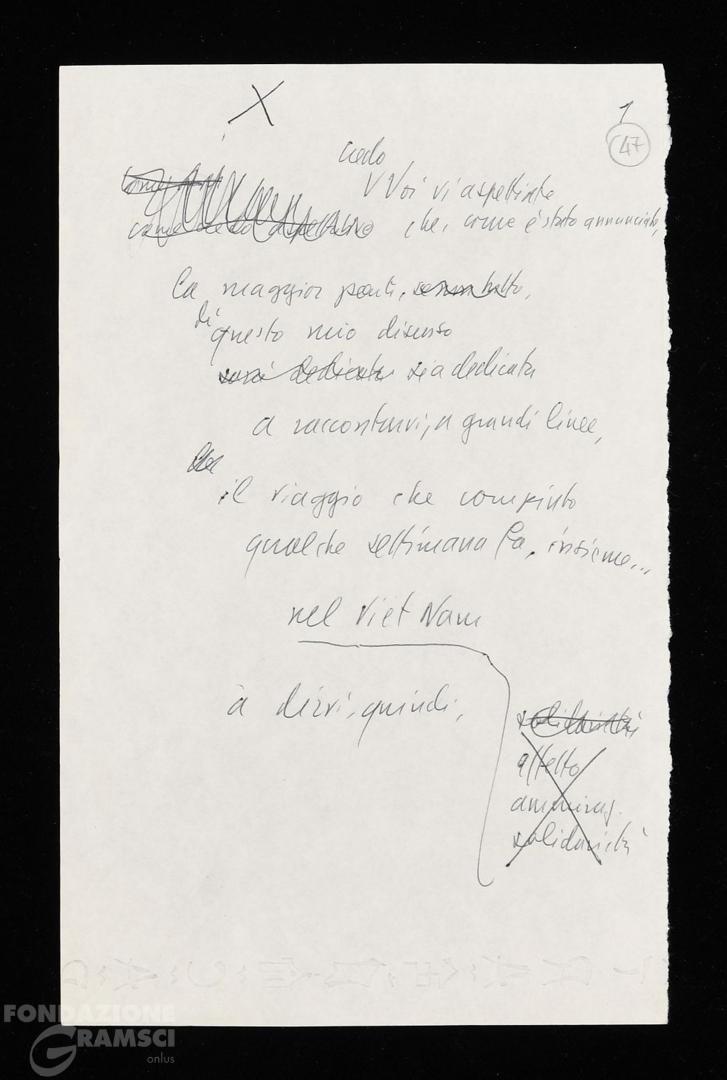 X
1
47
credo
Voi vi aspettiate
che, come è stato annunciato,
la maggior parte, senza tutto,
di
questo mio discorso
sarà dedicata sia dedicata
a raccontarvi, a grandi linee,
il viaggio che compiuto
qualche settimana fa, insieme...
nel Viet Nam
a dirvi, quindi,
solidarietà
affetto
ammiraz.
solidarietà
FONDAZIONE
GRAMSCI
onlus